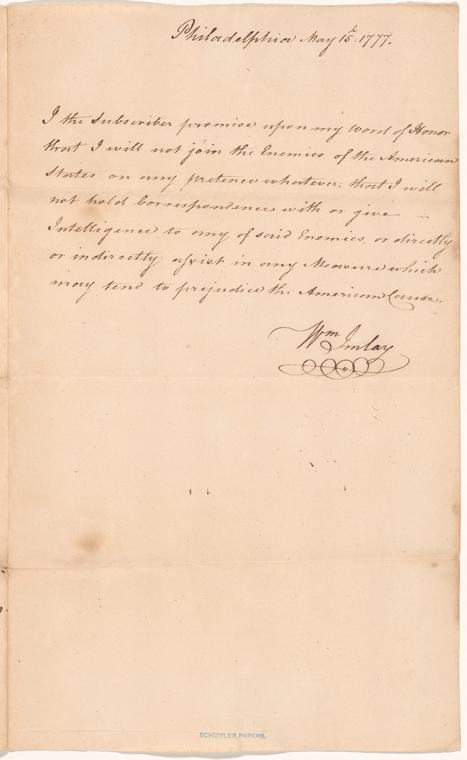 Philadelphia May 15.th 1777.
I the Subscriber promise upon my Word of Honor
that I will not join the Enemies of the American
States on any pretence whatever; that I will
not hold Correspondence with or give –
Intelligence to any of said Enemies, or directly
or indirectly assist in any Measure which
may tend to prejudice the American Cause.
Wm Imlay
SCHUYLER PAPERS.